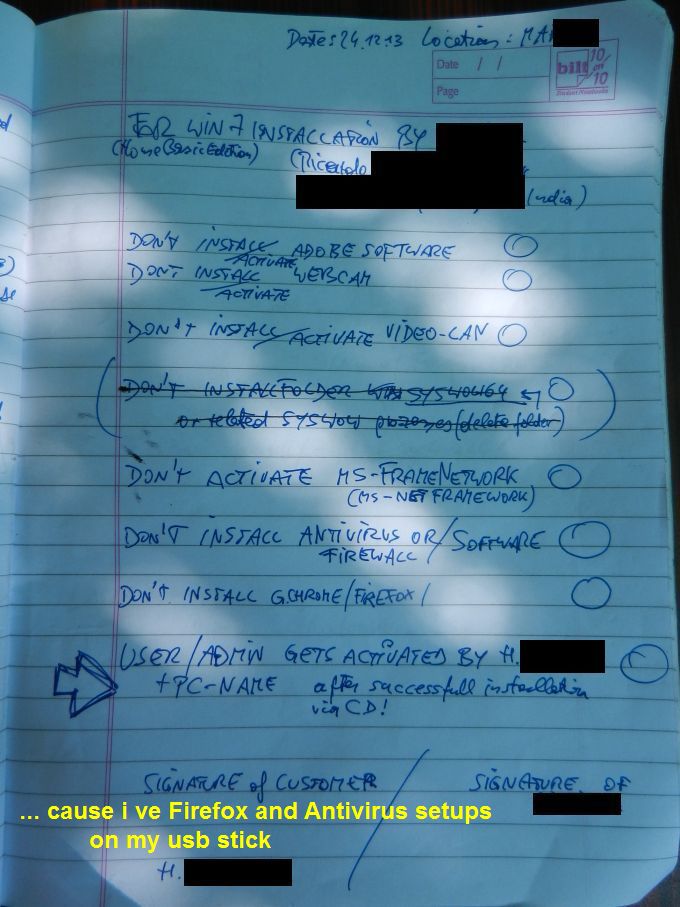 Date: 24.12.13 Location: MA
Date / /
Page
bilt 10 on 10
Student Notebooks
FOR WIN 7 INSTALLATION BY
(Home Basic Edition)
India)
DON'T INSTALL/ACTIVATE ADOBE SOFTWARE
DON'T INSTALL/ACTIVATE WEBCAM
DON'T INSTALL/ACTIVATE VIDEO-LAN
DON'T INSTALL FOLDER SYSWOW64
or related SYSWOW processes (delete folder)
DON'T ACTIVATE MS-FRAMENETWORK
(MS-NET FRAMEWORK)
DON'T INSTALL ANTIVIRUS OR/SOFTWARE
FIREWALL
DON'T INSTALL G.CHROME/FIREFOX/
USER/ADMIN GETS ACTIVATED BY H.
+PC-NAME after successfull installation
via CD!
SIGNATURE of CUSTOMER / SIGNATURE OF
... cause i ve Firefox and Antivirus setups
on my usb stick
H.